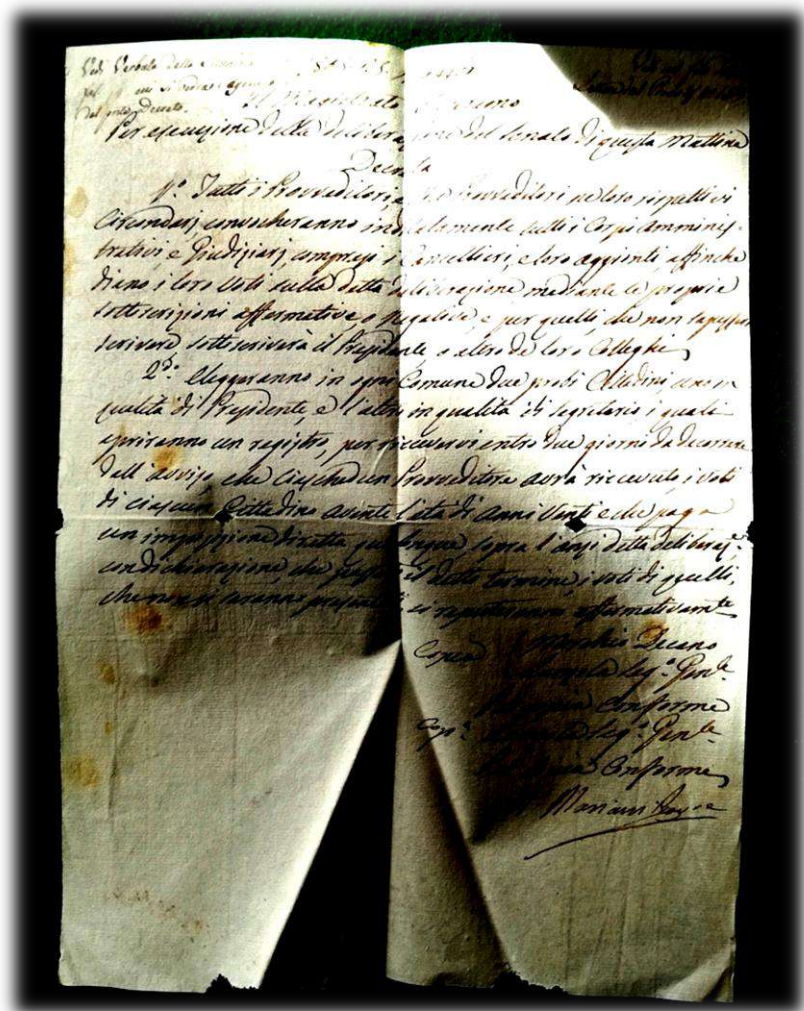 Vedi Verbale della
del
del Decreto.
Il Magistrato Supremo
Per esecuzione della deliberazione del Senato di questa Mattina
Decreta
1.º Tutti i Provveditori, e Provveditori ne loro rispettivi
Circondarj convocheranno immediatamente tutti i Corpi amminis-
trativi e Giudiziarj, compresi i Cancellieri, e loro aggionti, affinche
diano i loro Voti sulla detta deliberazione mediante le proprie
sottoscrizioni affermative, o Negative, e per quelli, che non sapessero
scrivere sottoscriverà il Presidente o altro de loro Colleghi
2.º Eleggeranno in ogni Comune due probi Cittadini, uno in
qualità di Presidente, e l'altro in qualità di Segretario, i quali
apriranno un registro, per ricevervi entro due giorni da decorrere
dall'avviso, che ciaschedun Provveditore avrà ricevuto, i voti
di ciascun Cittadino avente l'età di Anni Venti e che paga
un imposizione diretta qualunque sopra l'anzi detta deliberaz.e
con dichiarazione, che passato il detto termine, i voti di quelli,
che non si saranno presentati si reputeranno affermativam.te
Copia Decano
Seg.º Gen.le
Copia Conforme
Seg.º Gen.le
Copia Conforme